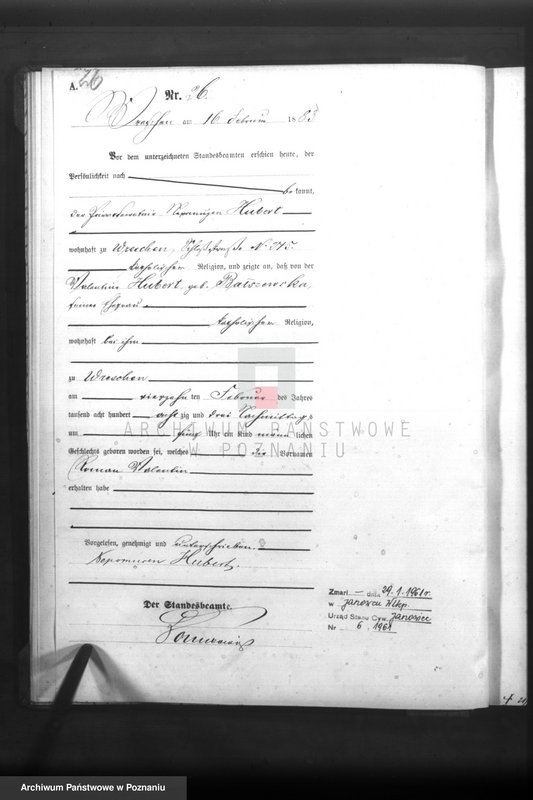 A.
26
Nr. 26.
Wreschen am 16 Februar 1883
Vor dem unterzeichneten Standesbeamten erschien heute, der
Persönlichkeit nach
be kannt,
der Nepomucen Hubert
wohnhaft zu Wreschen, Schloßstraße No 275
katholischer Religion, und zeigte an, daß von der
Valentine Hubert geb. Raiszewska,
seiner Ehefrau
katholischer Religion,
wohnhaft bei ihm
zu Wreschen
am vierzehn ten Februar des Jahres
tausend acht hundert acht zig und drei Nachmittags
um fünf Uhr ein Kind männ lichen
Geschlechts geboren worden sei, welches die Vornamen
Roman Valentin
erhalten habe
Vorgelesen, genehmigt und unterschrieben.
Nepomucen Hubert.
Der Standesbeamte.
Zmarł — dnia 29.1.1961 r.
w Janowcu Wlkp.
Urząd Stanu Cyw. Janowiec
Nr 6 1961
ARCHIWUM PAŃSTWOWE
W POZNANIU
Archiwum Państwowe w Poznaniu